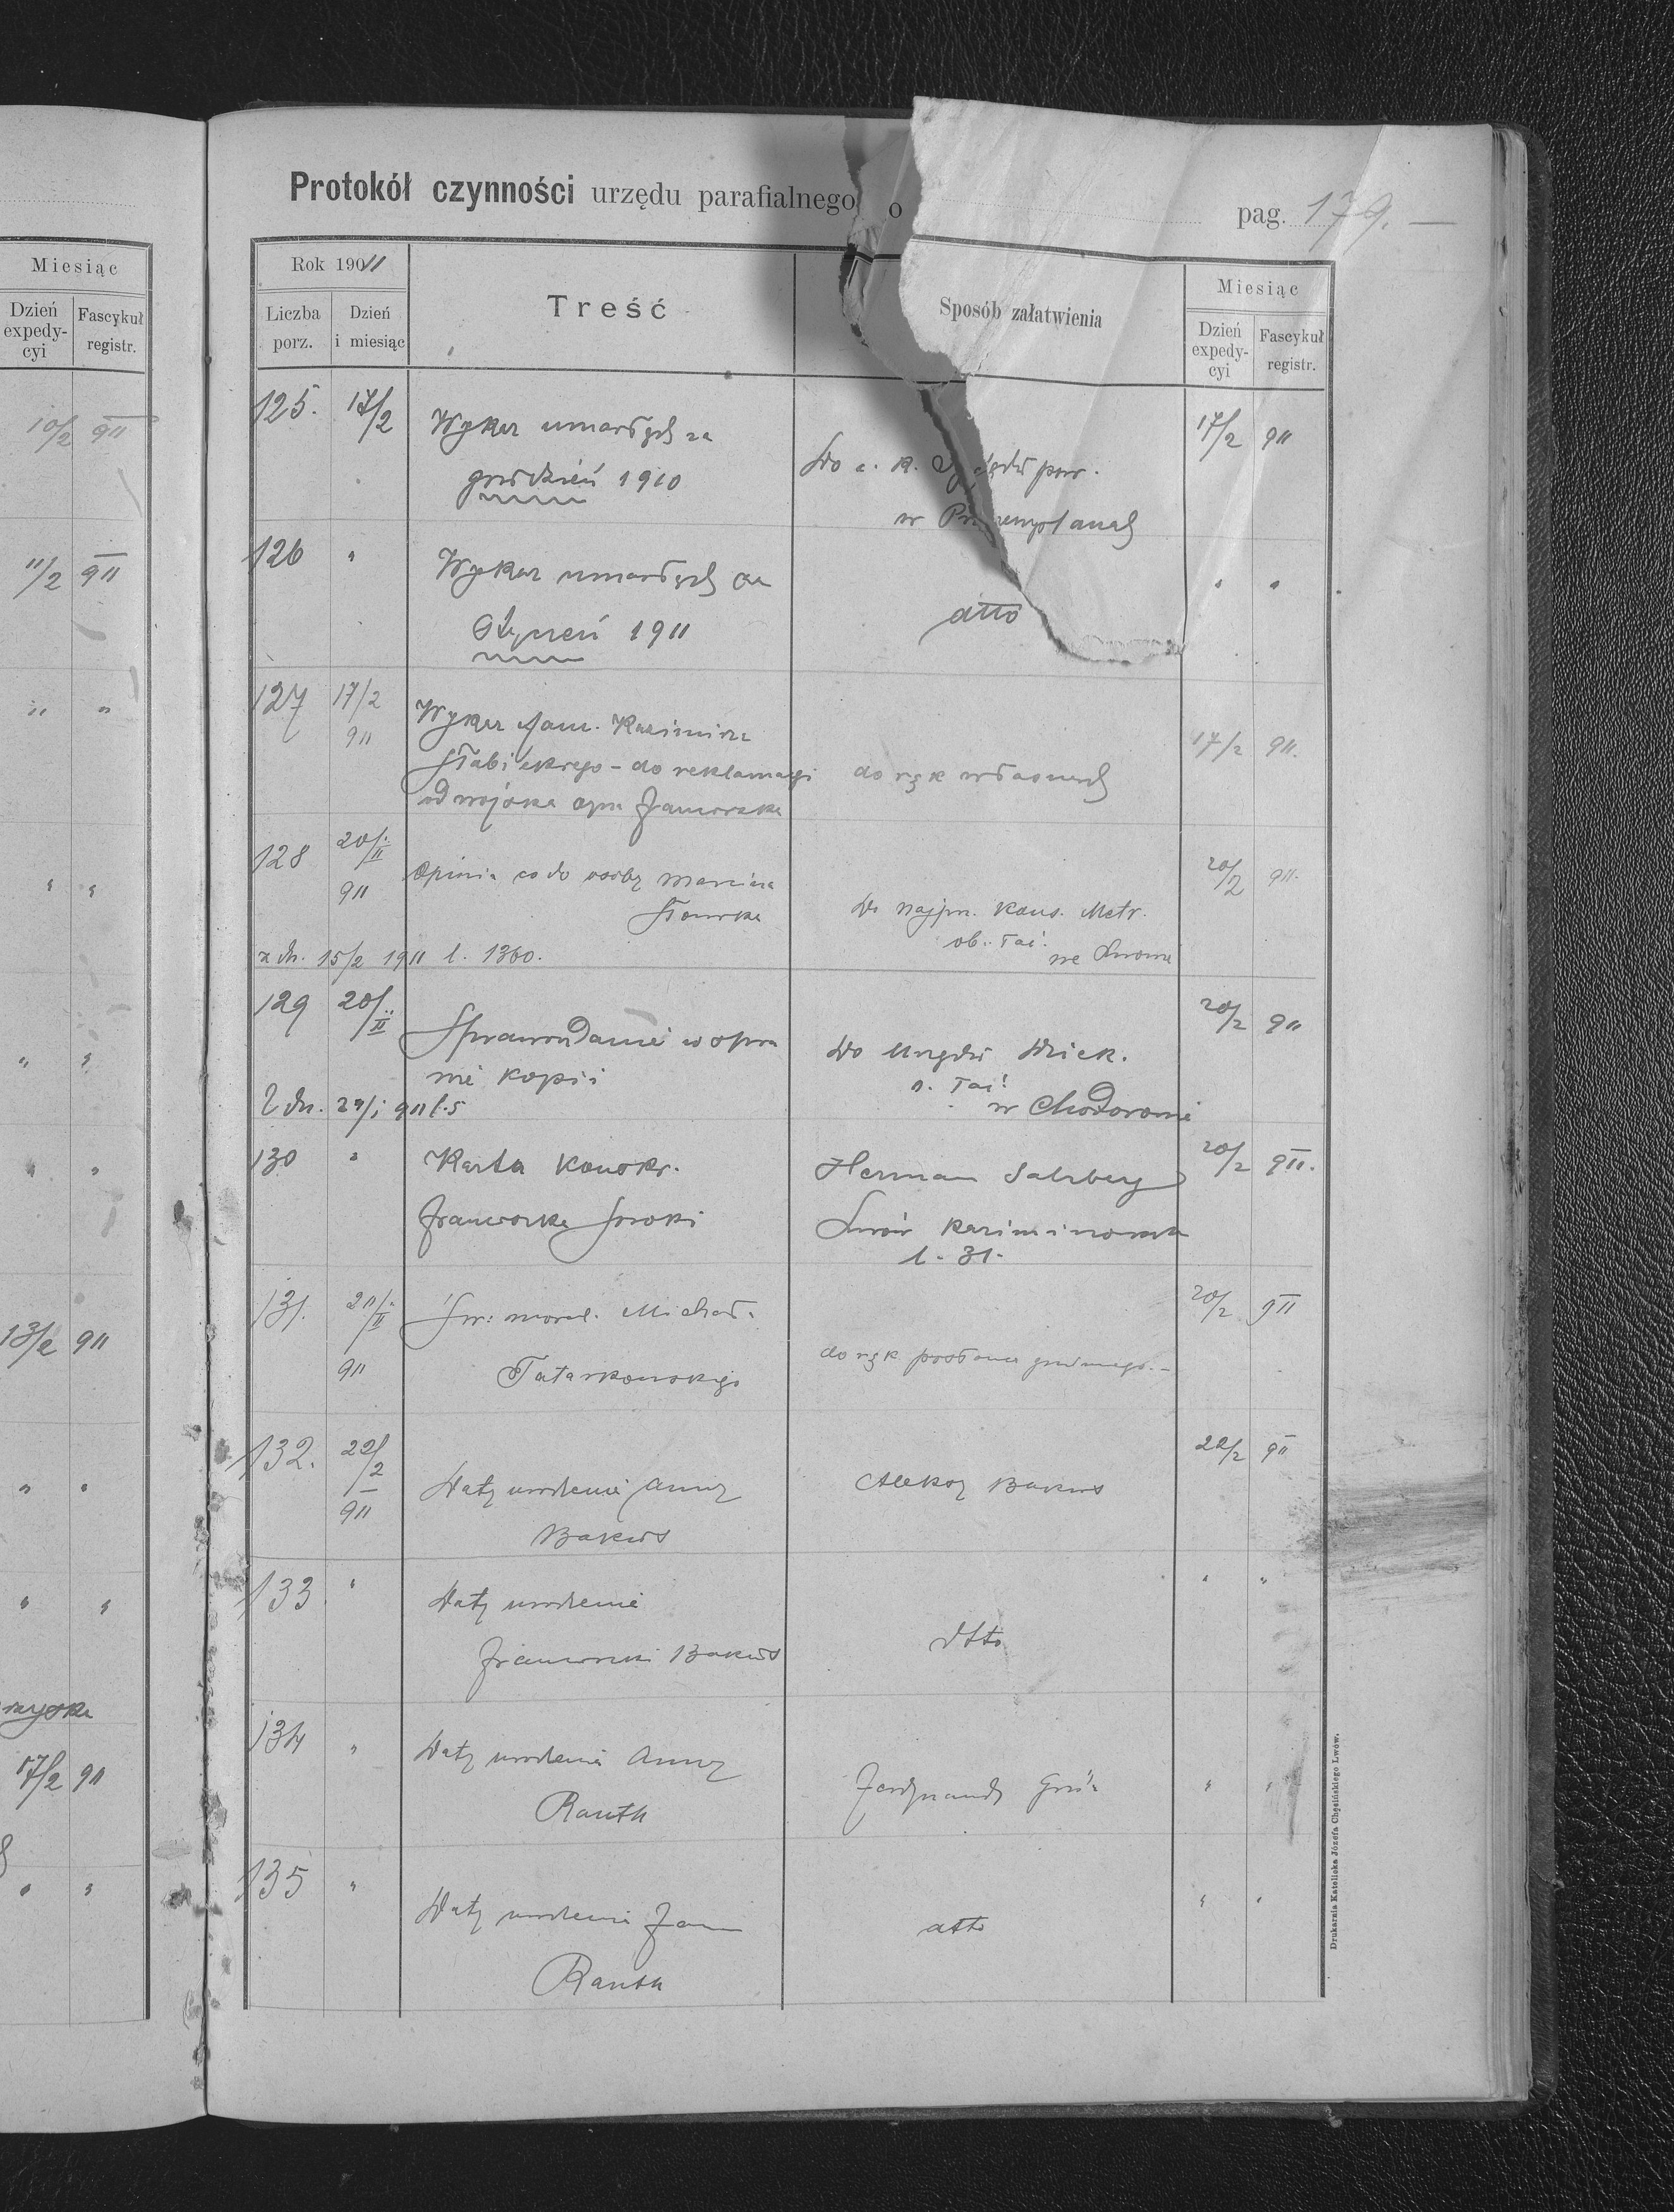 Protokół czynności urzędu parafialnego o
pag. 179. —
Miesiąc
Dzień expedycyi
Fascykuł registr.
10/2 911
11/2 911
" "
" "
" "
" "
13/2 911
" "
" "
17/2 911
" "
Rok 1911
Liczba porz.
Dzień i miesiąc
Treść
Sposób załatwienia
Miesiąc
Dzień expedycyi
Fascykuł registr.
125. 17/2 Wykaz umarłych za
grudzień 1910
Do c. k. pow.
w Przemyślanach
17/2 911
126 " Wykaz umarłych za
Styczeń 1911
dtto
" "
127 17/2 911 Wykaz fam. Kazimirza
Słabickiego - do reklamacyi
od wojska syna Franciszka
do rąk własnych
17/2 911.
128 20/II 911 Opinia co do osoby Marcina
z dn. 15/2 1911 l. 1360.
Do Najprz. Kons. Metr.
ob. łać.
we Lwowie
20/2 911.
129 20/II Sprawozdanie w spra
wie kopii
Z dn. 911 l. 5
Do Urzędu Dziek.
o. łać.
w Chodorowie
20/2 911
130 " Karta Konskr.
Franciszka Sroki
Herman Salzberg
Lwów Kazimirowska
l. 31.
20/2 911.
131. 911 Św. moral. Michała
Tatarkowskiego
do rąk posłańca gminnego. -
20/2 911
132. 22/2 911 Daty urodzenia Anny
Bakus
Aleksy Bakus
22/2 911
133 " Daty urodzenia
Franciszki Bakus
dtto
" "
134 " Daty urodzenia Anny
Rauth
" "
135 " Daty urodzenia Jana
Rauth
dtto
" "
Drukarnia Katolicka Józefa Chęcińskiego Lwów.